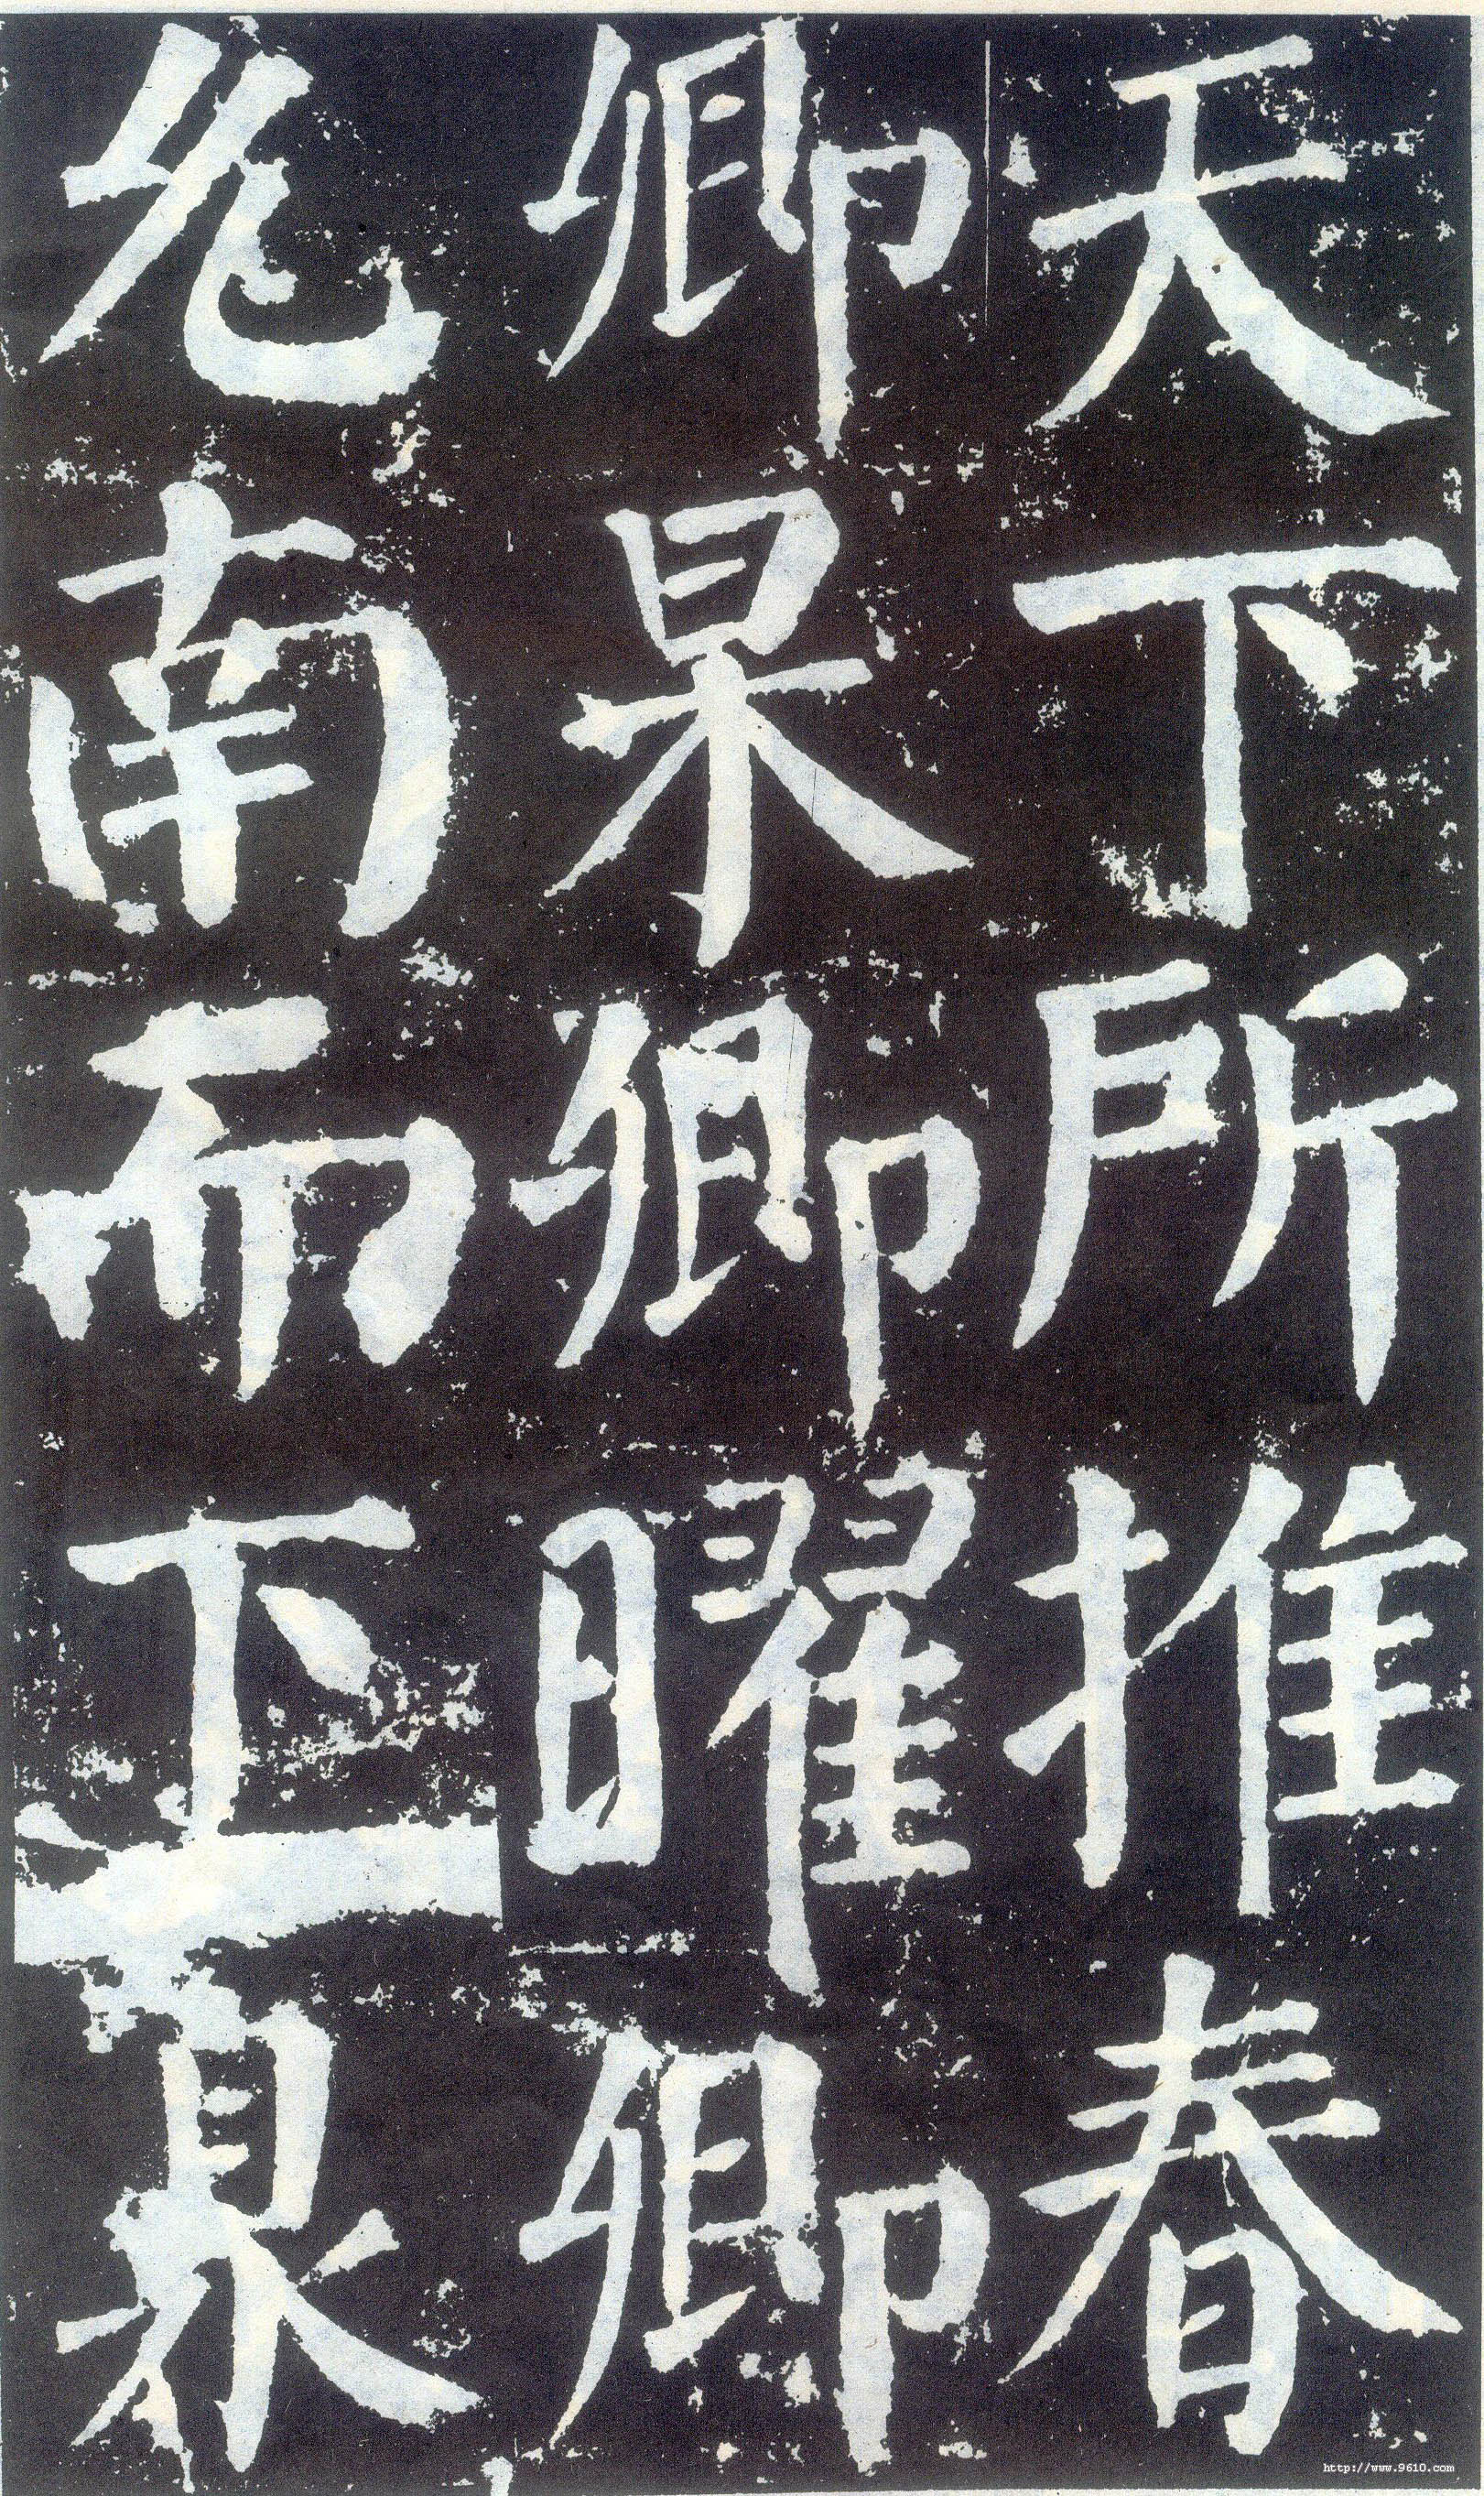 天下所推春
卿杲卿曜卿
允南而下臮
http://www.9610.com